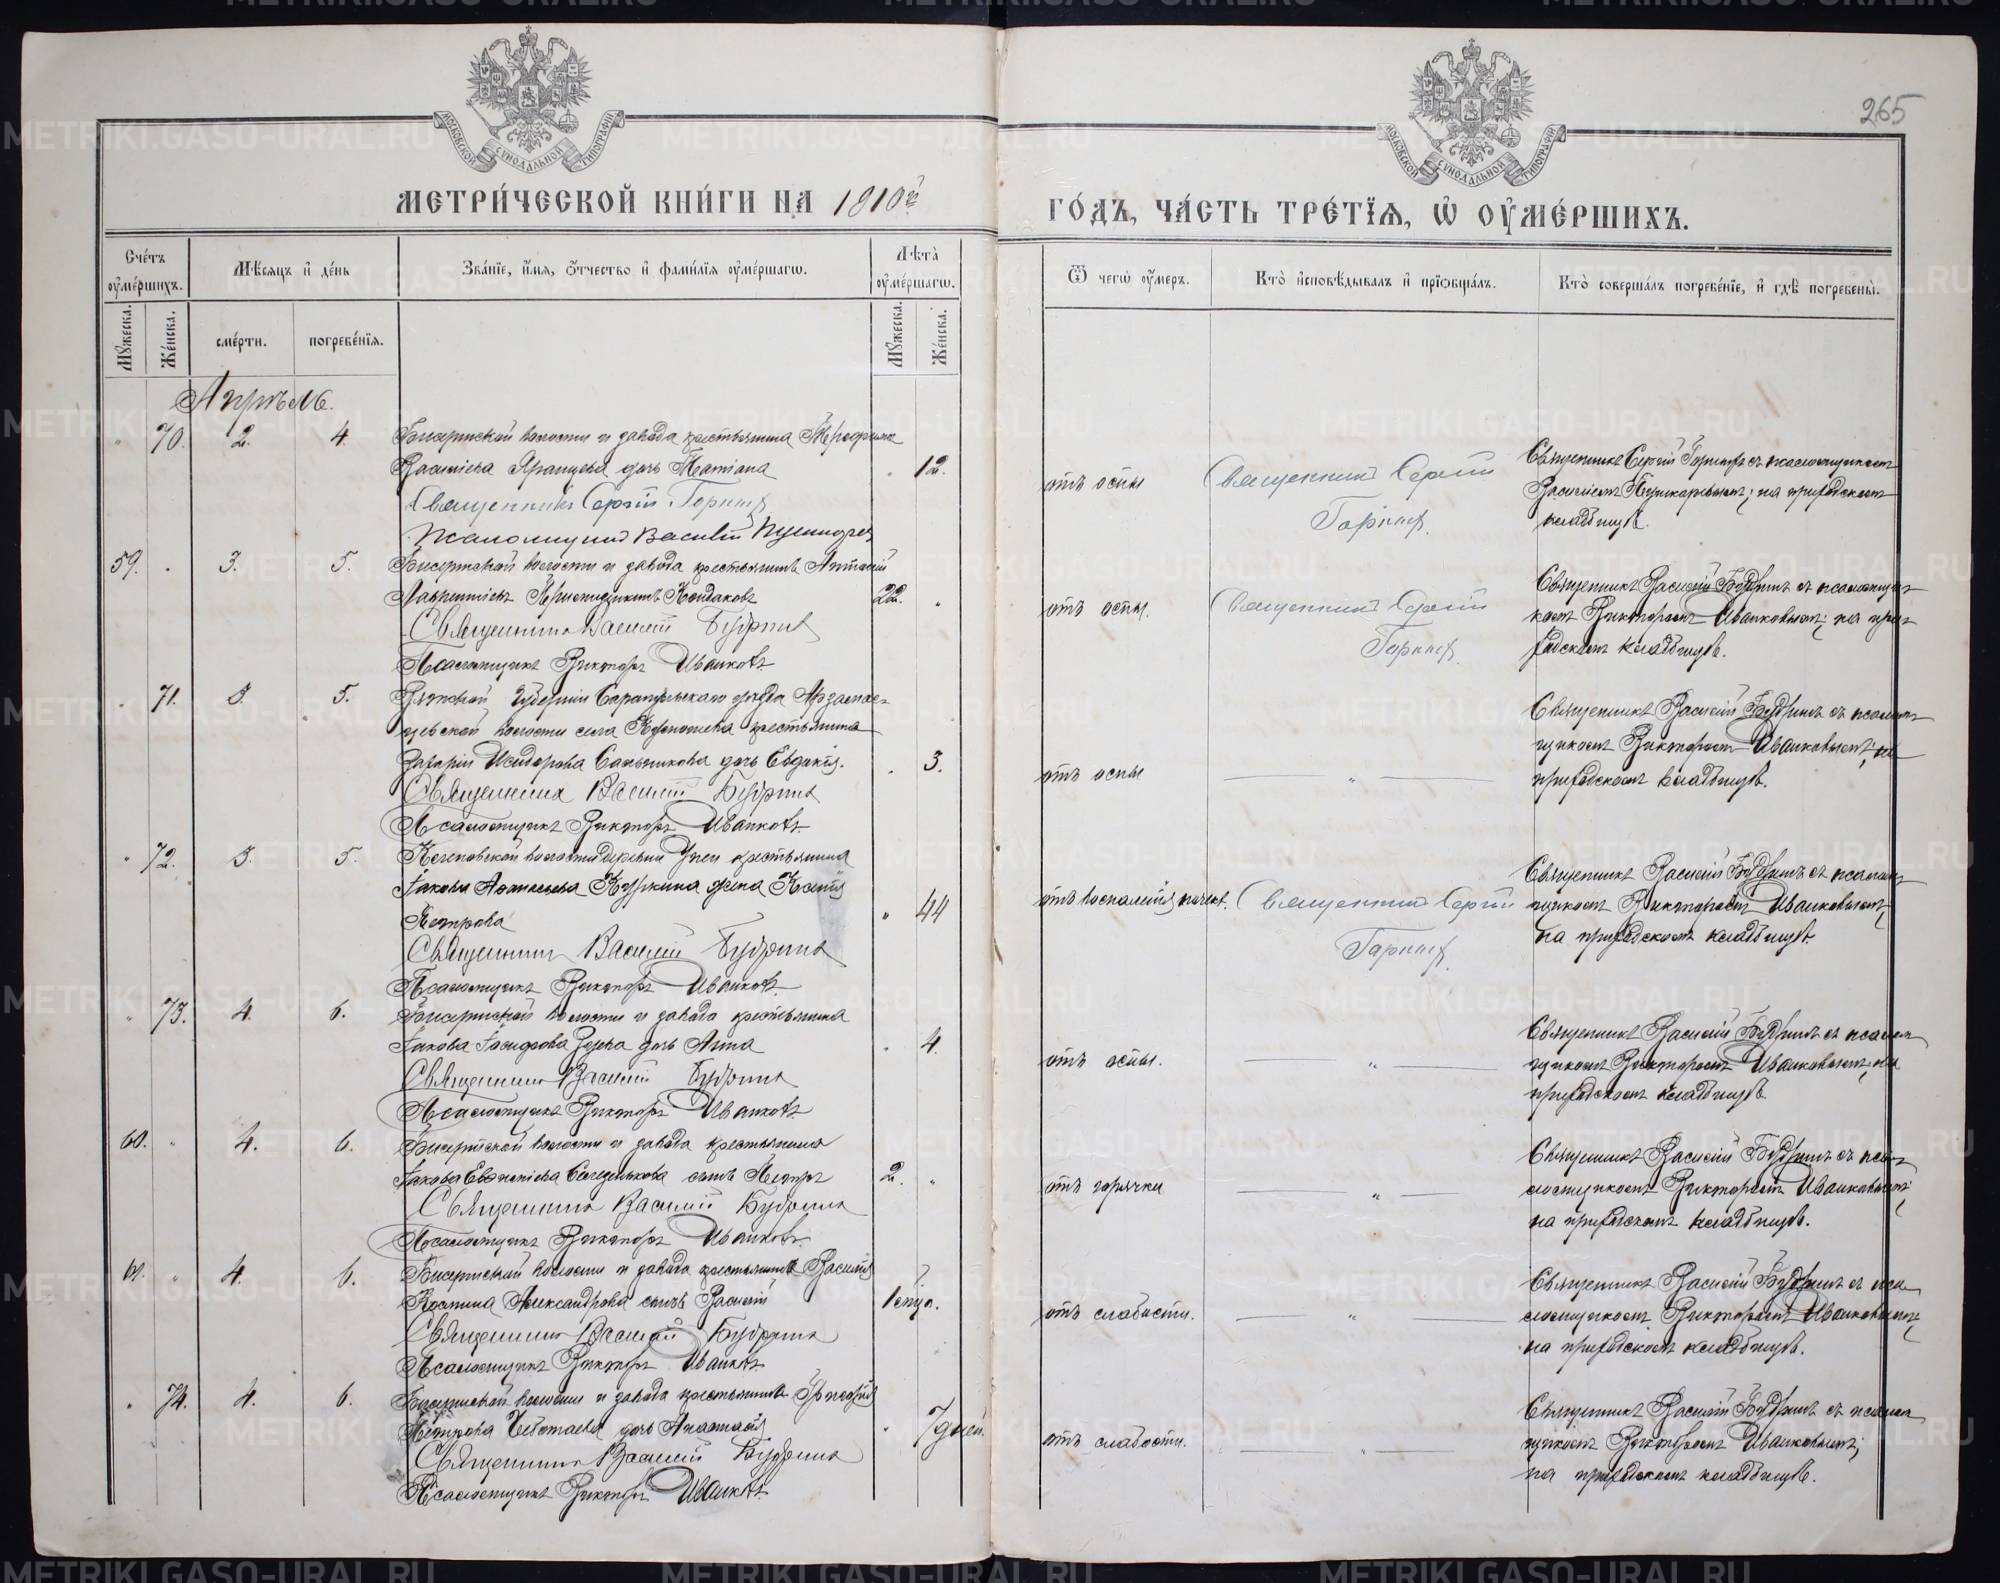 265
МОСКОВСКОЙ СѴНОДАЛЬНОЙ ТИПОГРАФІИ
МОСКОВСКОЙ СѴНОДАЛЬНОЙ ТИПОГРАФІИ
МЕТРИ́ЧЕСКОЙ КНИ́ГИ НА 1910й
ГО́ДЪ, ЧА́СТЬ ТРЕ́ТІѦ, Ѡ҆ ОУ҆МЕ́РШИХЪ.
Сче́тъ оу҆ме́ршихъ.
Мѣ́сяцъ и҆ де́нь
Зва́нїе, и҆́мя, ѻ҆́тчество и҆ фами́лїя оу҆ме́ршагѡ.
Лѣ́та оу҆ме́ршагѡ.
Мꙋ́жеска.
Же́нска.
сме́рти.
погребе́нїя.
Мꙋ́жеска.
Же́нска.
Ѿ чегѡ̀ оу҆́меръ.
Кто̀ и҆сповѣ́дывалъ и҆ прїѻбща́лъ.
Кто̀ соверша́лъ погребе́нїе, и҆ гдѣ̀ погребены̀.
Апрѣль.
" 70. 2. 4. Бисертской волости и завода крестьянина Трофима
Василіева дочь Татіана " 12.
Священникъ Сергій
Псаломщикъ Василій
отъ оспы
Священникъ Сергій
Священникъ Сергій съ псаломщикомъ
Василіемъ на приходскомъ
кладбищѣ.
59. " 3. 5. Бисертской волости и завода крестьянинъ
Лаврентіевъ Кондаковъ 22. "
Священникъ Василій Будринъ
Псаломщикъ Викторъ Иванковъ
отъ оспы.
Священникъ Сергій
Священникъ Василій Будринъ съ псаломщи-
комъ Викторомъ Иванковымъ; на при-
ходскомъ кладбищѣ.
" 71. 3. 5. Вятской губерніи Сарапульскаго уѣзда
волости села крестьянина
Захаріи Исидорова Санникова дочь Евдокія. " 3.
Священникъ Василій Будринъ
Псаломщикъ Викторъ Иванковъ
отъ оспы
"
Священникъ Василій Будринъ съ псалом-
щикомъ Викторомъ Иванковымъ; на
приходскомъ кладбищѣ.
" 72. 3. 5. волости деревни крестьянина
Іакова Куркина жена
Петрова " 44
Священникъ Василій Будринъ
Псаломщикъ Викторъ Иванковъ
отъ воспаленія почекъ.
Священникъ Сергій
Священникъ Василій Будринъ съ псалом-
щикомъ Викторомъ Иванковымъ,
на приходскомъ кладбищѣ.
" 73. 4. 6. Бисертской волости и завода крестьянина
Іакова дочь Анна " 4.
Священникъ Василій Будринъ
Псаломщикъ Викторъ Иванковъ
отъ оспы.
"
Священникъ Василій Будринъ съ псалом-
щикомъ Викторомъ Иванковымъ, на
приходскомъ кладбищѣ.
60. " 4. 6. Бисертской волости и завода крестьянина
Іакова сынъ Петръ 2. "
Священникъ Василій Будринъ
Псаломщикъ Викторъ Иванковъ
отъ горячки
"
Священникъ Василій Будринъ съ пса-
ломщикомъ Викторомъ Иванковымъ;
на приходскомъ кладбищѣ.
61. " 4. 6. Бисертской волости и завода крестьянина Василія
Александрова сынъ Василій
Священникъ Василій Будринъ
Псаломщикъ Викторъ Иванковъ
отъ слабости.
"
Священникъ Василій Будринъ съ пса-
ломщикомъ Викторомъ Иванковымъ;
на приходскомъ кладбищѣ.
" 74. 4. 6. Бисертской волости и завода крестьянина Григорія
Петрова дочь Анастасія " 7 дней.
Священникъ Василій Будринъ
Псаломщикъ Викторъ Иванковъ
отъ слабости.
"
Священникъ Василій Будринъ съ псалом-
щикомъ Викторомъ Иванковымъ;
на приходскомъ кладбищѣ.
METRIKI.GASO-URAL.RU